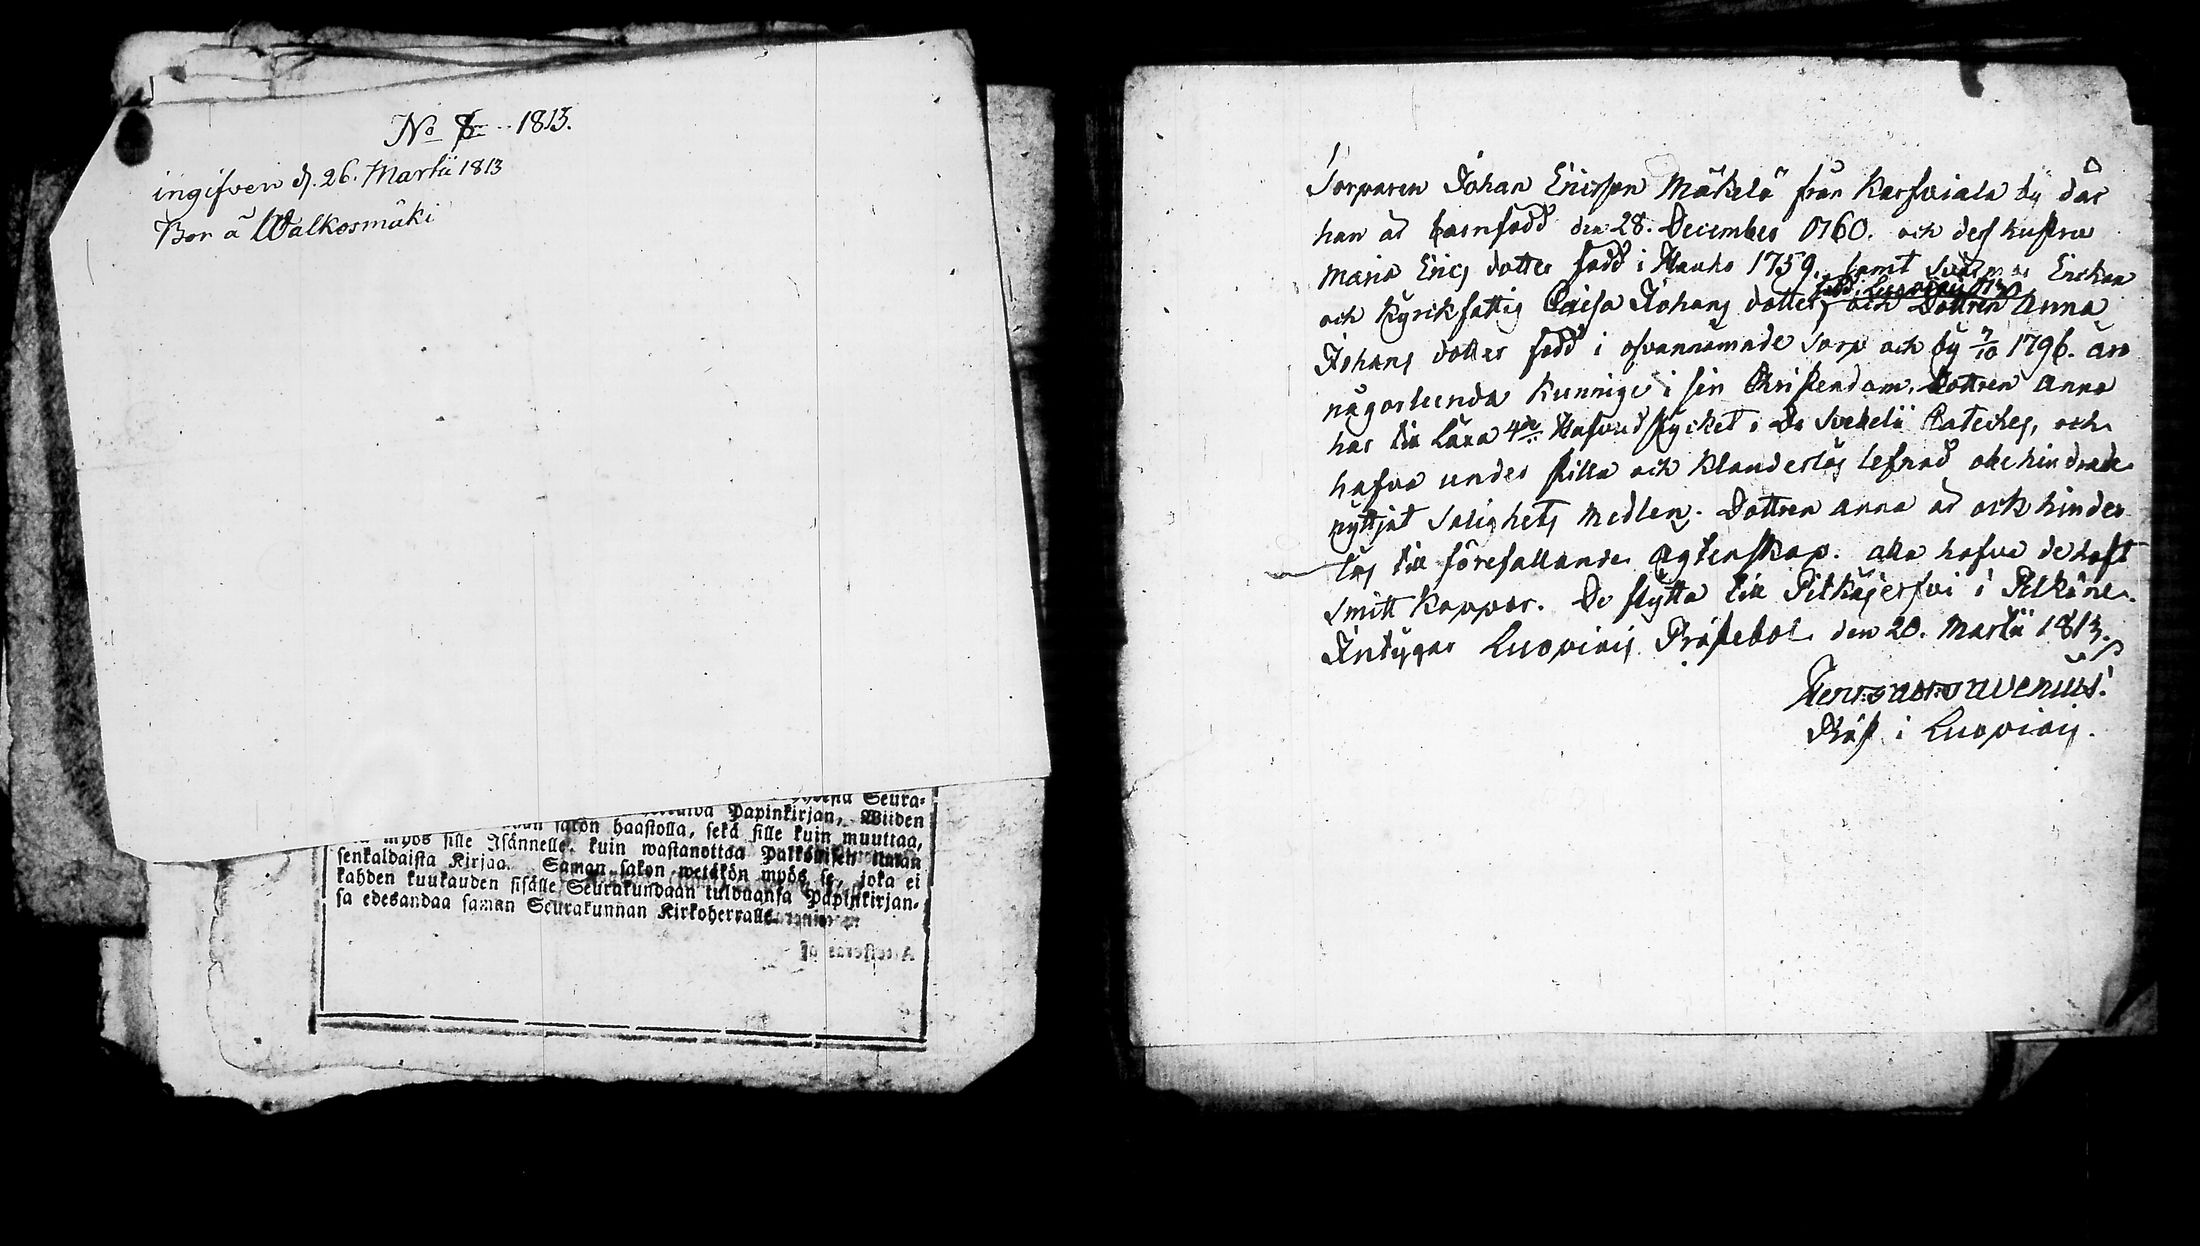 No 8 1813.
ingifven d. 26. Martii 1813
Bor å Walkosmäki
Seura-
Papinkirjan, Wiiden
sakon haastolla, sekä sille kuin muuttaa,
myös sille Isännelle, kuin wastanottaa Palkollisen ilman
senkaldaista Kirjaa. Saman sakon wetäkön myös se, joka ei
kahden kuukauden sisälle Seurakundaan tulduansa Papinkirjan-
sa edesandaa saman Seurakunnan Kirkoherralle.
Torparen Johan Ericsson Mäkelä från Karfwiala by där
han är barnfödd den 28. December 1760. och dess hustru
Maria Erics dotter född i Hauho 1759. samt Enckan
född Luopiois
och Kyrckfattig Caisa Johans dotter, och Dottren Anna
Johans dotter född i ofvannämnde Torp och by 7/10 1796. äro
någorlunda kunnige i sin Christendom. Dottren Anna
har till Läxa 4de Hufvudstycket i Dr Svebelii Cateches, och
hafva under stilla och klanderlös lefnad obehindrade
nyttjat Salighets Medlen. Dottren Anna är ock hinder-
lös till förefallande Ägtenskap. alla hafva de haft
Smitt Koppor. De flytta till Pitkäjerfvi i Pelkäne.
Intygar Luopiois Prästebol den 20. Martii 1813.
Präst i Luopiois.